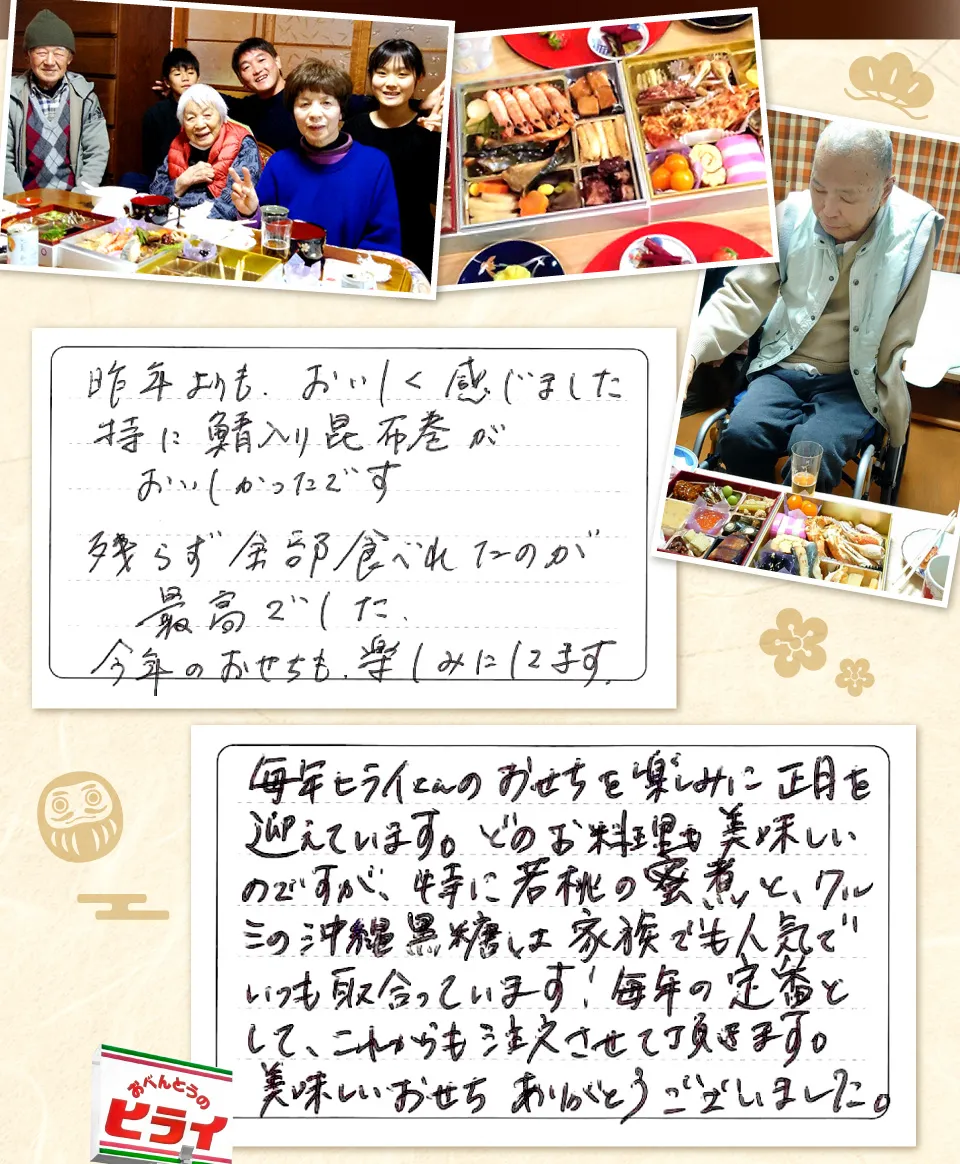 昨年よりも、おいしく感じました
特に鯖入り昆布巻が
おいしかったです
残らず全部食べれたのが
最高でした、
今年のおせちも、楽しみにしてます。
毎年ヒライさんのおせちを楽しみに正月を
迎えています。どのお料理も美味しい
のですが、特に若桃の蜜煮と、クル
ミの沖縄黒糖は家族でも人気で
いつも取合っています!毎年の定番と
して、これからも注文させて頂きます。
美味しいおせちありがとうございました。
おべんとうの
ヒライ